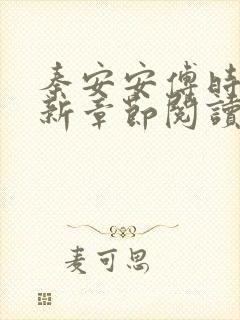 秦安安傅時
新章節閱讀
麦可思